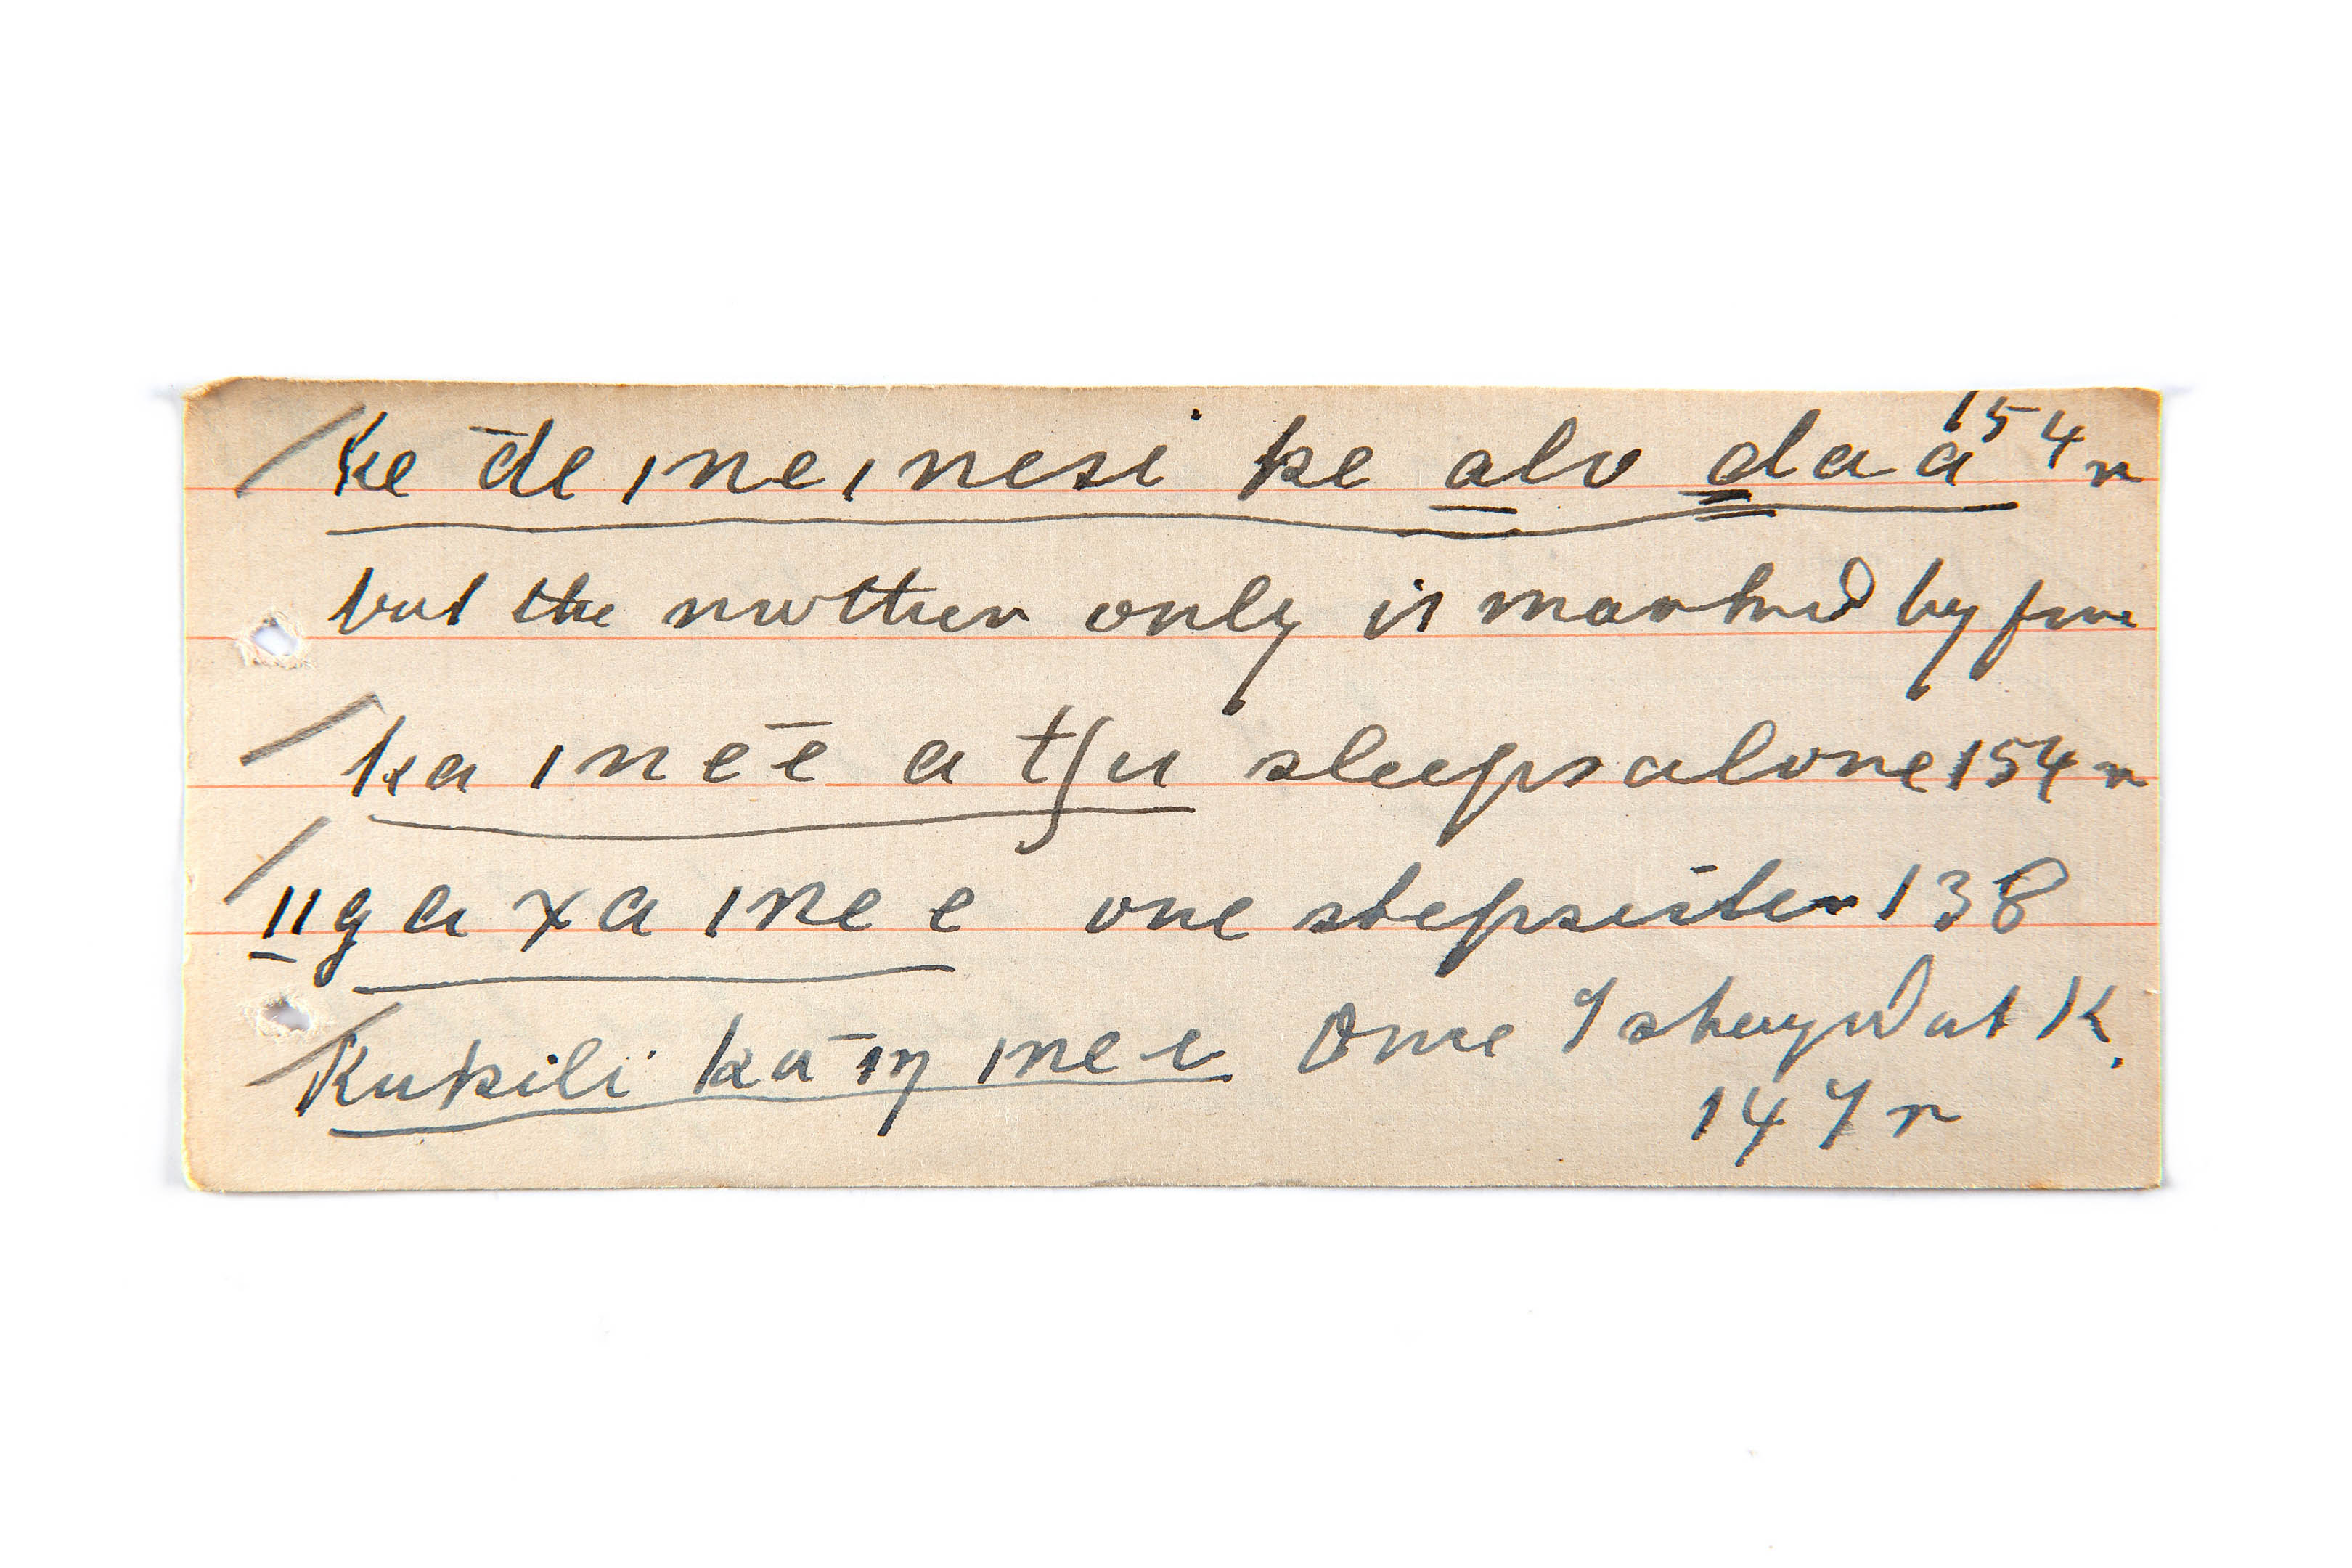 ke d̄e ıne ınesi ke a̲lo d̳aa 154 r
but the mother only is marked by fire
ka ıneē a tʃu sleeps alone 154 r
ııga xa ınee one stepsister 138
Kukili kāıŋ ınee Once I stayed at K.
147 r